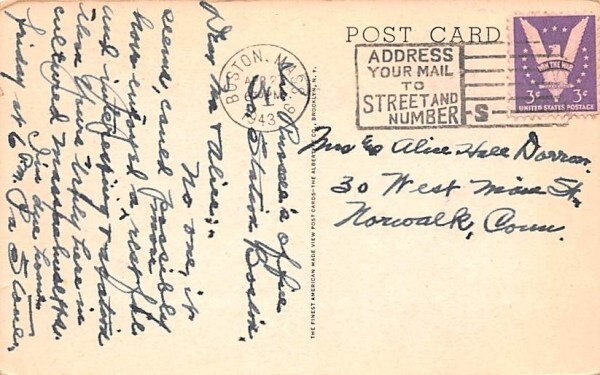 POST CARD
ADDRESS
YOUR MAIL
TO
STREET AND
NUMBER
BOSTON, MASS.
1943
WIN THE WAR
3¢ 3¢
UNITED STATES POSTAGE
Mrs Alice Hall Dorran
30 West Main St.
Norwalk, Conn.
THE FINEST AMERICAN MADE VIEW POST CARDS—THE ALBERTYPE CO., BROOKLYN, N.Y.
office
Station Boston
Dear Ma + Alice:-
No one, it
seems, could possibly
have enjoyed a more restful
and interesting vacation
than yours truly here in
cultured Massachusetts.
I'm due home
Friday at 6 PM